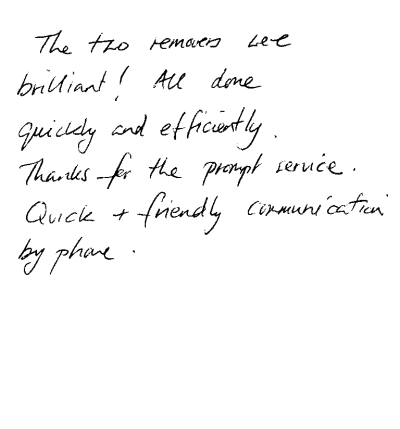 The two removers were
brilliant! All done
quickly and efficiently.
Thanks for the prompt service.
Quick + friendly communication
by phone.